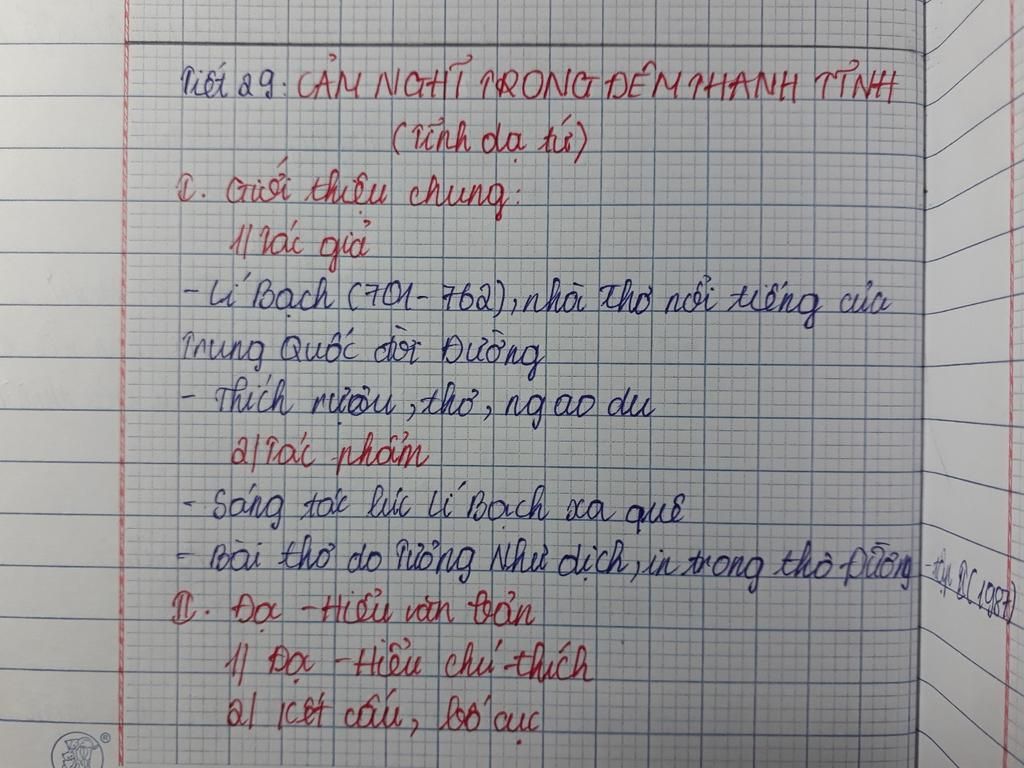 Tiết 29: CẢM NGHĨ TRONG ĐÊM THANH TĨNH
(Tĩnh dạ tứ)
I. Giới thiệu chung:
1) Tác giả
- Lí Bạch (701 - 762), nhà thơ nổi tiếng của
Trung Quốc đời Đường
- Thích rượu, thơ, ngao du
2) Tác phẩm
- Sáng tác lúc Lí Bạch xa quê
- Bài thơ do Tương Như dịch, in trong thơ Đường - tập II (1987)
II. Đọ - Hiểu văn bản
1) Đọ - Hiểu chú thích
2) Kết cấu, bố cục